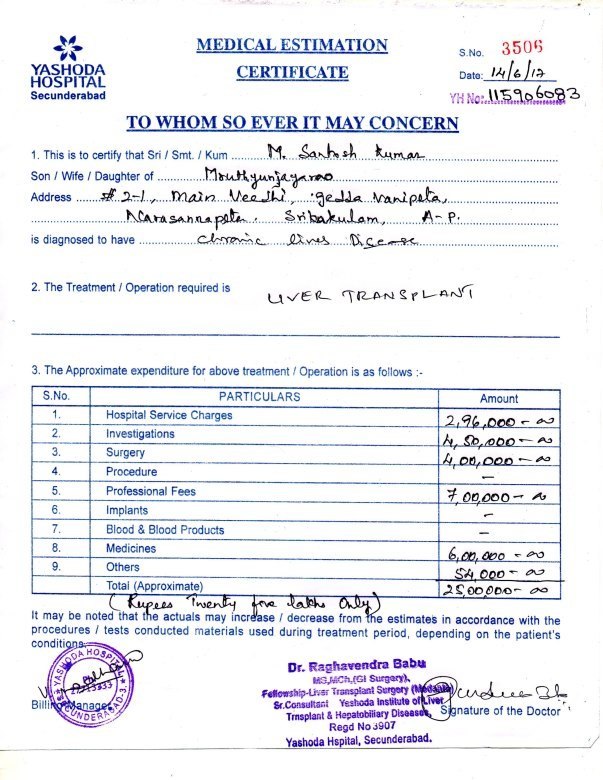 YASHODA
HOSPITAL
Secunderabad
MEDICAL ESTIMATION
CERTIFICATE
S.No. 3506
Date: 14/6/17
YH No: 115906083
TO WHOM SO EVER IT MAY CONCERN
1. This is to certify that Sri / Smt. / Kum M. Santosh Kumar
Son / Wife / Daughter of Mruthyunjayarao
Address # 2-1, Main Veedhi, gedda vanipeta,
Narasannapeta. Srikakulam, A-P.
is diagnosed to have chronic liver Disease
2. The Treatment / Operation required is LIVER TRANSPLANT
3. The Approximate expenditure for above treatment / Operation is as follows :-
S.No. PARTICULARS Amount
1. Hospital Service Charges 2,96,000-00
2. Investigations 4,50,000-00
3. Surgery 4,00,000-00
4. Procedure -
5. Professional Fees 7,00,000-00
6. Implants -
7. Blood & Blood Products -
8. Medicines 6,00,000-00
9. Others 54,000-00
Total (Approximate) 2500000-00
(Rupees Twenty five lakhs Only)
It may be noted that the actuals may increase / decrease from the estimates in accordance with the
procedures / tests conducted materials used during treatment period, depending on the patient's
conditions.
YASHODA HOSPITAL
SECUNDERABAD-3.
Billing Manager
Dr. Raghavendra Babu
MS,MCh,(GI Surgery),
Fellowship-Liver Transplant Surgery (Medanta)
Sr.Consultant Yashoda Institute of Liver
Trnsplant & Hepatobiliary Diseases,
Regd No 3907
Yashoda Hspital, Secunderabad.
Signature of the Doctor